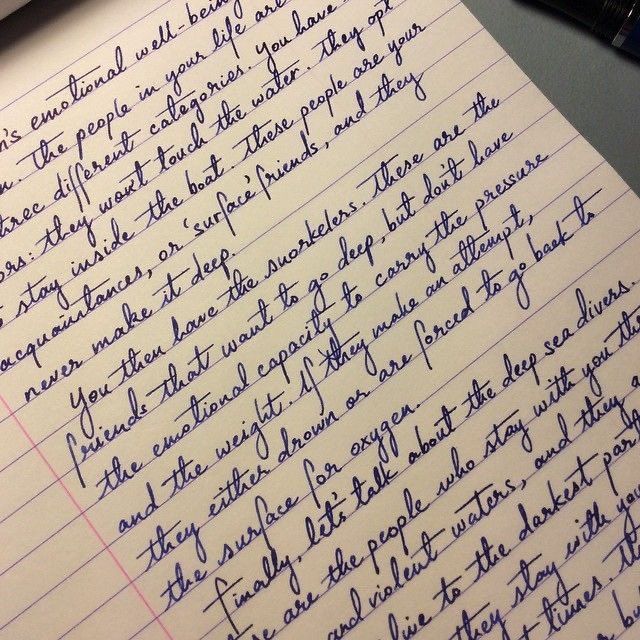 n's emotional well-being
n. The people in your life are
tirec different categories. You have
ors: they won't touch the water. they opt
stay inside the boat. These people are your
acquaintances, or 'surface' friends, and they
never make it deep.
You then have the snorkelers. these are the
friends that want to go deep, but don't have
the emotional capacity to carry the pressure
and the weight. If they make an attempt,
they either drown or are forced to go back to
the surface for oxygen.
Finally, let's talk about the deep sea divers.
se are the people who stay with you th
and violent waters, and they a
ive to the darkest par
they stay with you
t times.